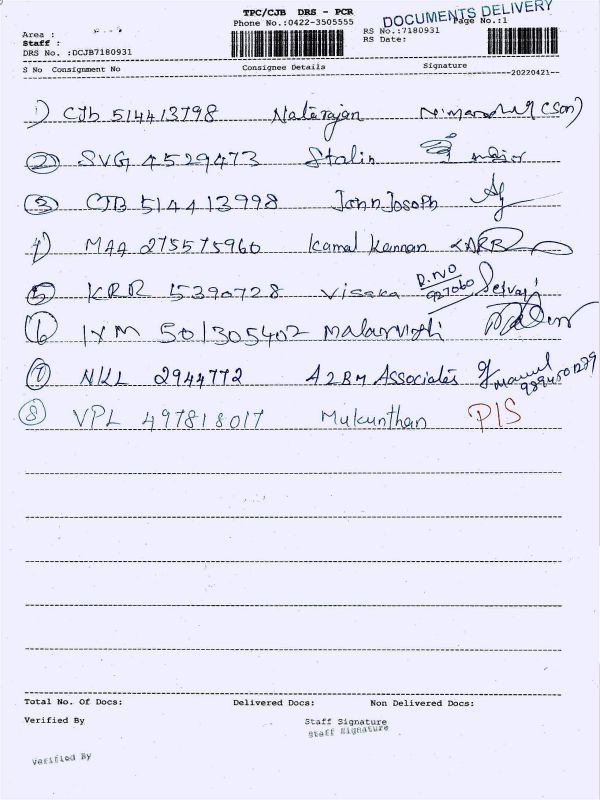 TPC/CJB DRS - PCR
DOCUMENTS DELIVERY
Phone No.:0422-3505555
Page No.:1
Area :
RS No.:7180931
Staff :
RS Date:
DRS No. :DCJB7180931
S No Consignment No Consignee Details Signature
--20220421--
1) CJb 514413798 Natarajan (Son)
2) SVG 4529473 Stalin
3) CJB 514413998 John Joseph
4) MAA 275575960 Kamal Kannan
5) KRR 15390728 Visaka R.NO 927060 Selvaji
6) IXM 501305402 Malarvizhi
7) NKL 2944772 A2BM Associates
8) VPL 497818017 Mukunthan PIS
Total No. Of Docs: Delivered Docs: Non Delivered Docs:
Verified By Staff Signature
Staff Signature
Verified By